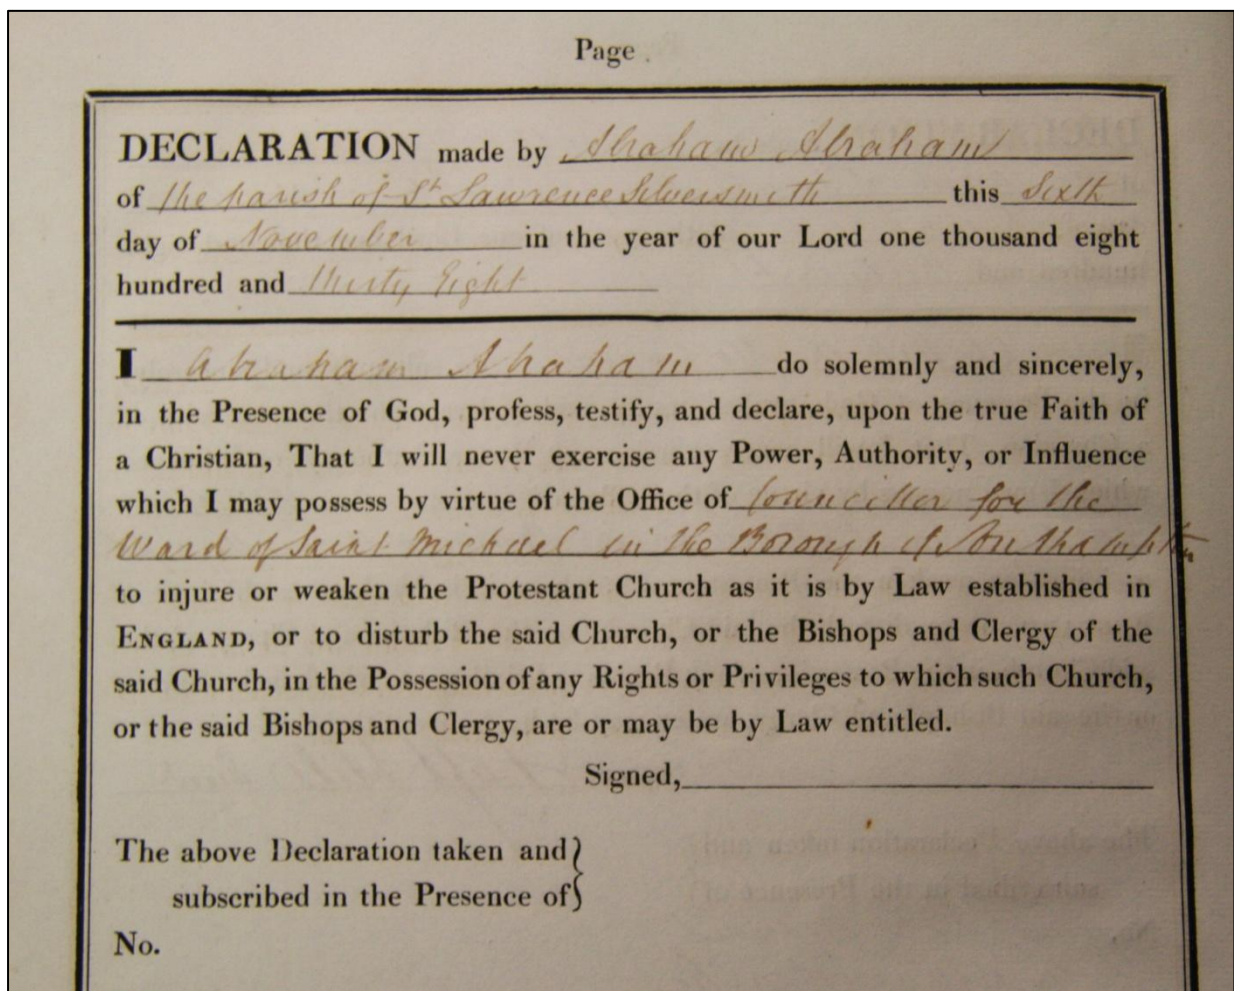 Page
DECLARATION made by Abraham Abraham
of the parish of St Lawrence Silversmith this Sixth
day of November in the year of our Lord one thousand eight
hundred and thirty Eight
I Abraham Abraham do solemnly and sincerely,
in the Presence of God, profess, testify, and declare, upon the true Faith of
a Christian, That I will never exercise any Power, Authority, or Influence
which I may possess by virtue of the Office of Councillor for the
Ward of Saint Michael in the Borough of Southampton
to injure or weaken the Protestant Church as it is by Law established in
ENGLAND, or to disturb the said Church, or the Bishops and Clergy of the
said Church, in the Possession of any Rights or Privileges to which such Church,
or the said Bishops and Clergy, are or may be by Law entitled.
Signed,
The above Declaration taken and
subscribed in the Presence of
No.